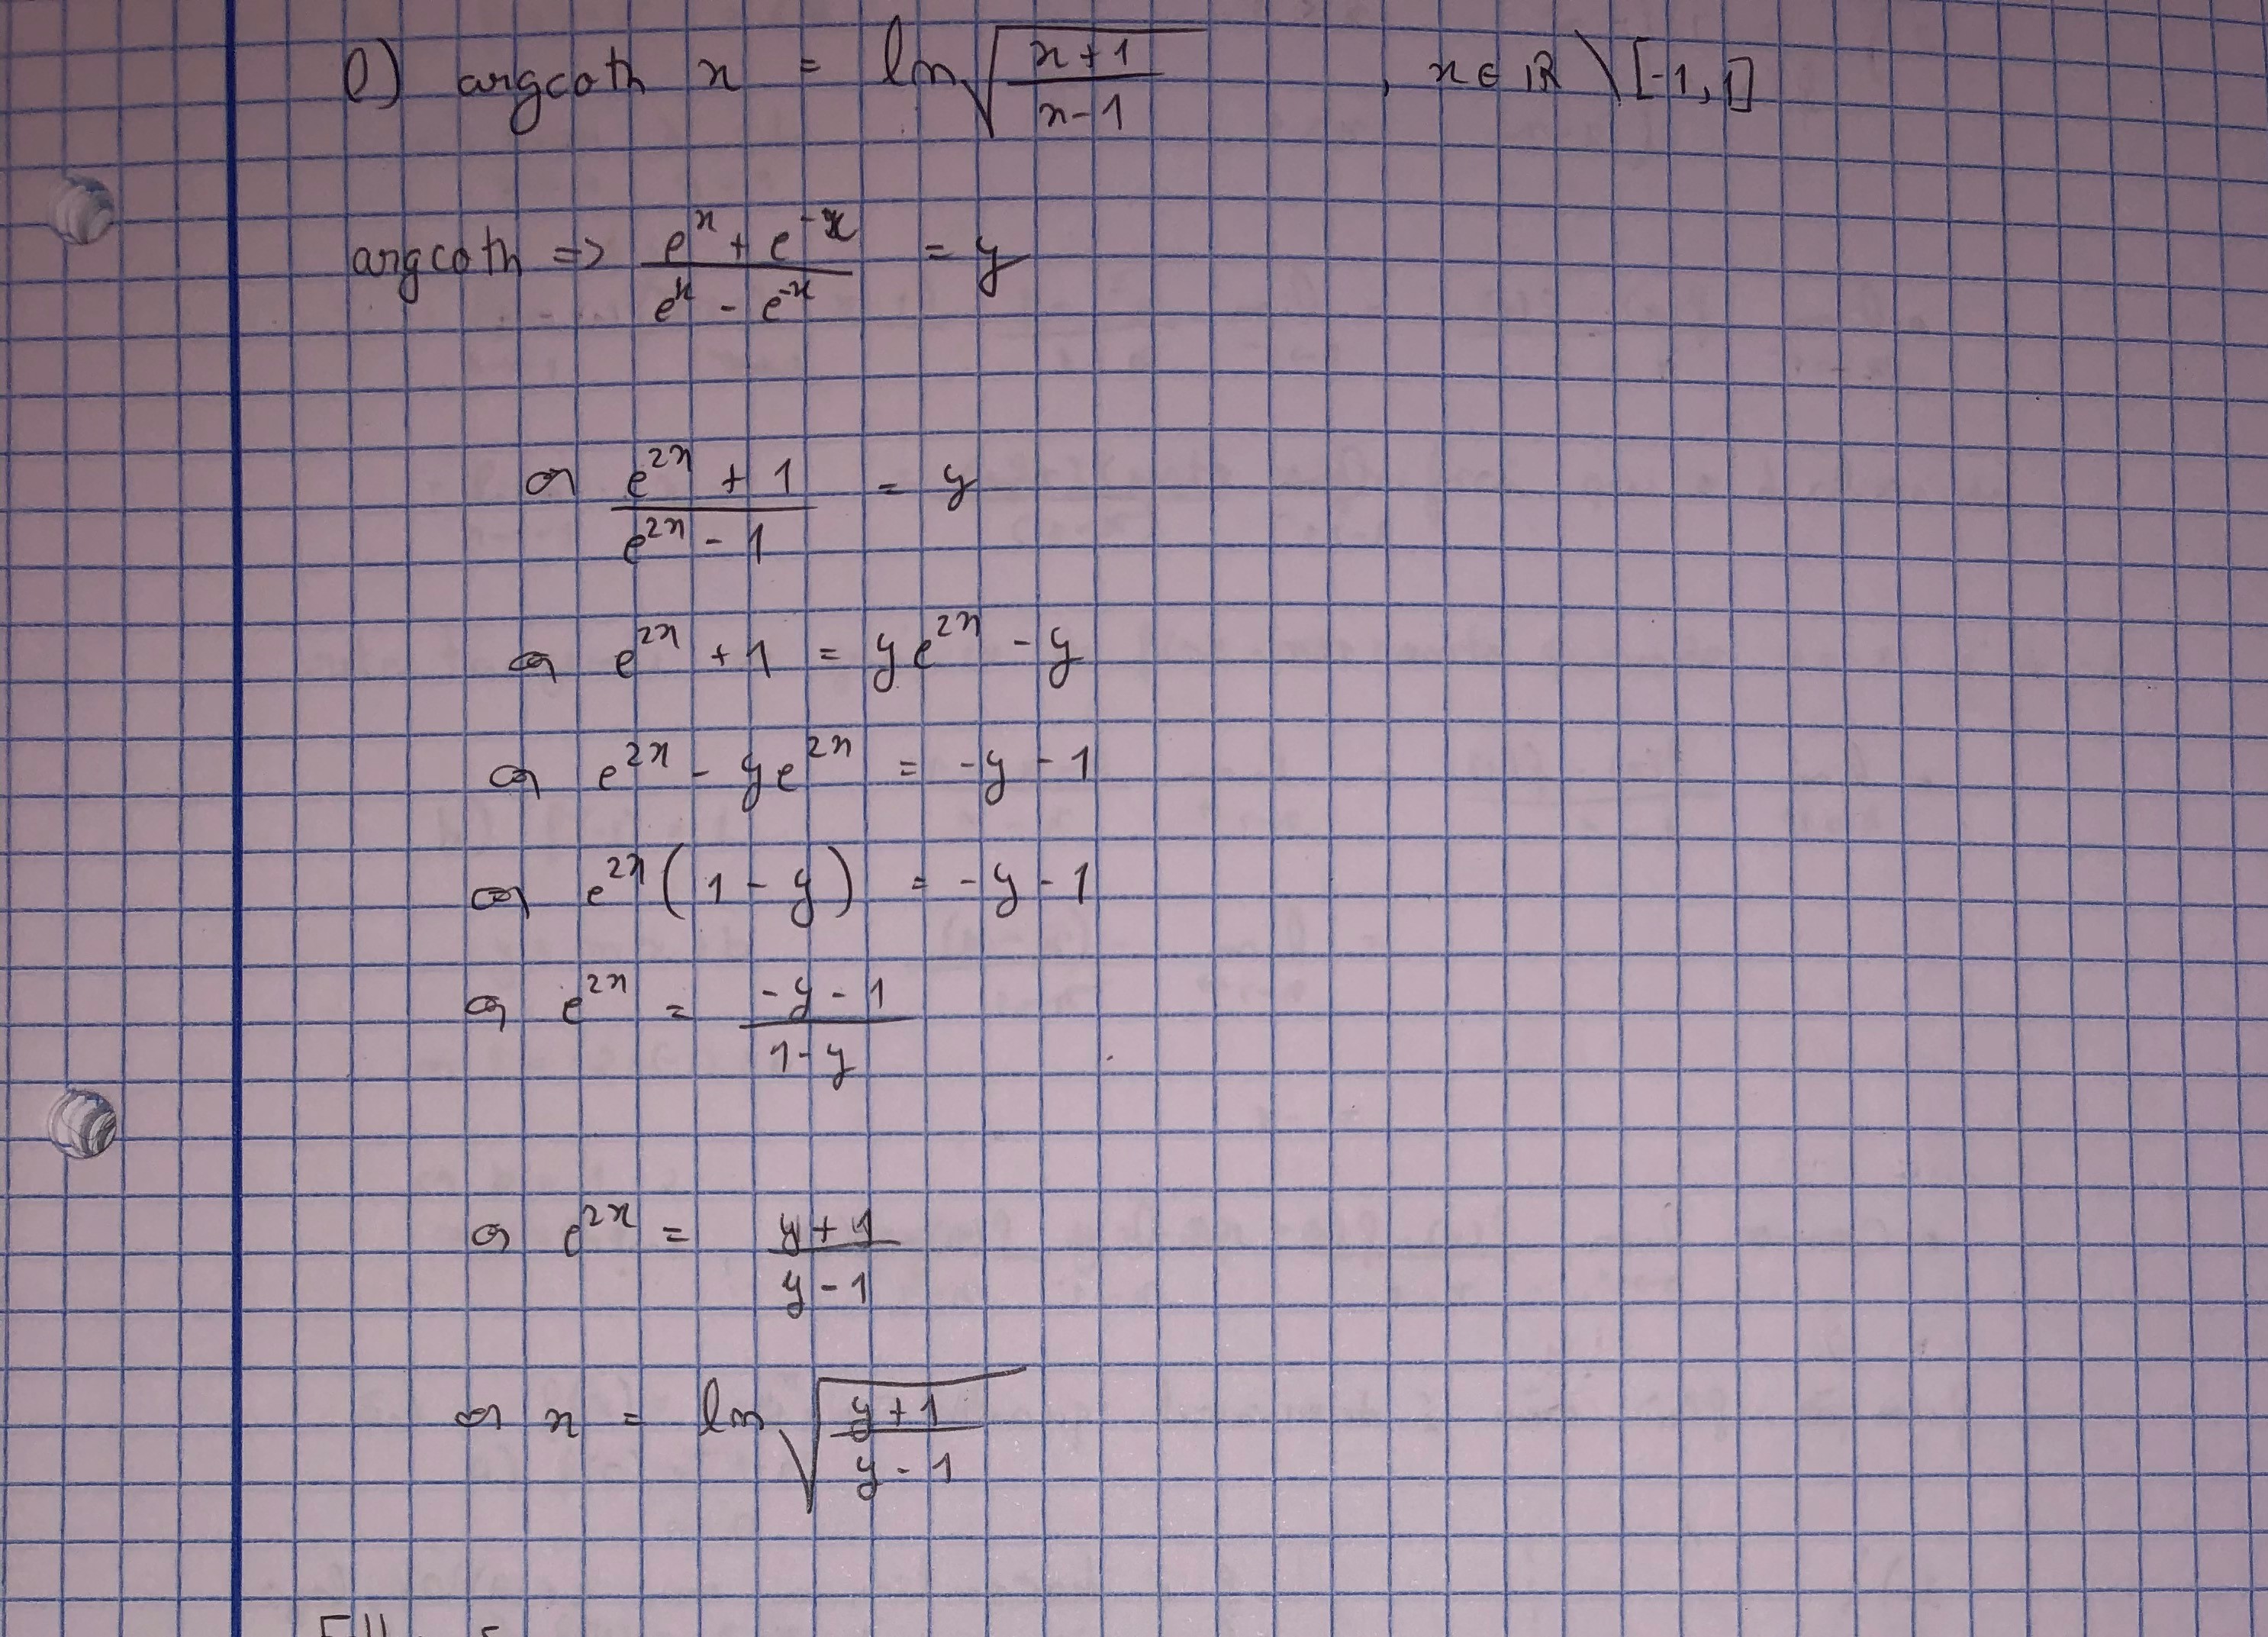 l) argcoth x = ln √((x+1)/(x-1)) , x ∈ ℝ \ [-1, 1]
argcoth => (e^x + e^-x)/(e^x - e^-x) = y
⇔ (e^2x + 1)/(e^2x - 1) = y
⇔ e^2x + 1 = ye^2x - y
⇔ e^2x - ye^2x = -y - 1
⇔ e^2x (1 - y) = -y - 1
⇔ e^2x = (-y - 1)/(1 - y)
⇔ e^2x = (y + 1)/(y - 1)
⇔ x = ln √((y + 1)/(y - 1))